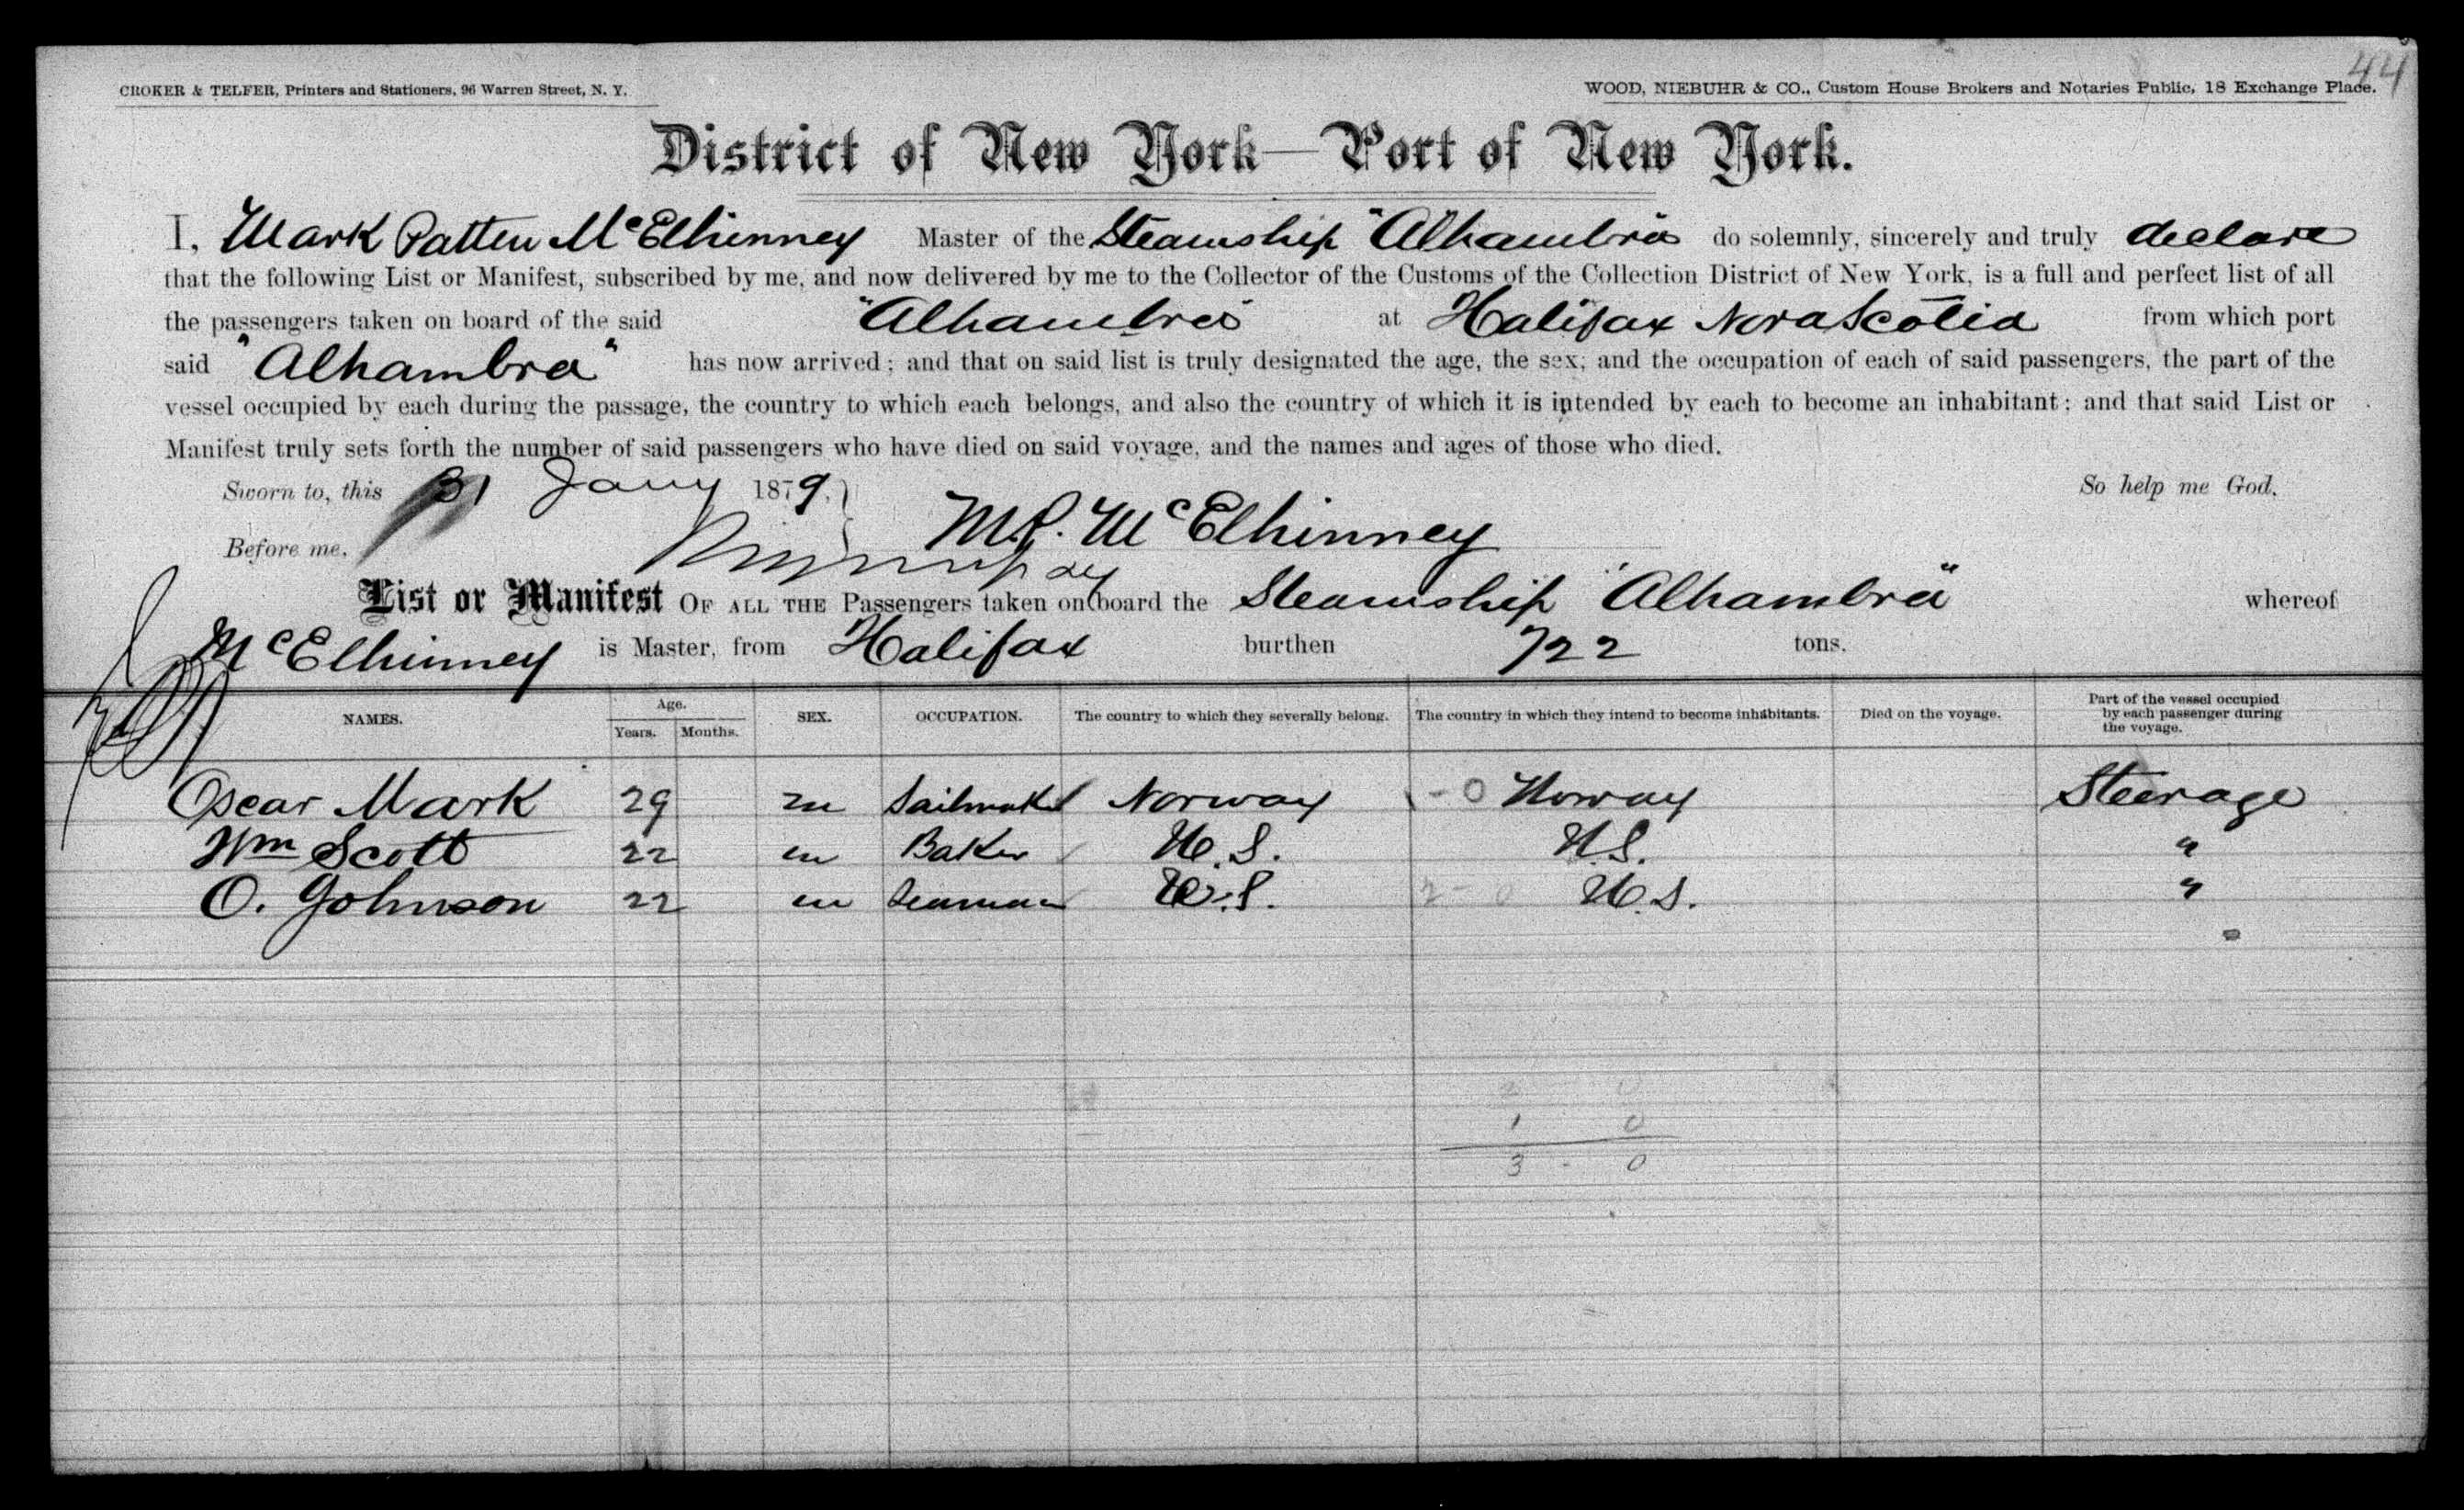 44
CROKER & TELFER, Printers and Stationers, 96 Warren Street, N. Y.
WOOD, NIEBUHR & CO., Custom House Brokers and Notaries Public, 18 Exchange Place.
District of New York—Port of New York.
I, Mark Patten McElhinney Master of the Steamship "Alhambra" do solemnly, sincerely and truly declare
that the following List or Manifest, subscribed by me, and now delivered by me to the Collector of the Customs of the Collection District of New York, is a full and perfect list of all
the passengers taken on board of the said "Alhambra" at Halifax Nova Scotia from which port
said "Alhambra" has now arrived; and that on said list is truly designated the age, the sex, and the occupation of each of said passengers, the part of the
vessel occupied by each during the passage, the country to which each belongs, and also the country of which it is intended by each to become an inhabitant; and that said List or
Manifest truly sets forth the number of said passengers who have died on said voyage, and the names and ages of those who died.
Sworn to, this 31 Jany 1879, So help me God.
Before me, M.P. McElhinney
List or Manifest OF ALL THE Passengers taken on board the Steamship "Alhambra" whereof
McElhinney is Master, from Halifax burthen 722 tons.
NAMES. Age. Years. Months. SEX. OCCUPATION. The country to which they severally belong. The country in which they intend to become inhabitants. Died on the voyage. Part of the vessel occupied by each passenger during the voyage.
Oscar Mark 29 m Sailmaker Norway - 0 Norway Steerage
Wm Scott 22 m Baker U.S. U.S. "
O. Johnson 22 m Seaman U.S. 2 - 0 U.S. "
2 0
1 0
3 - 0